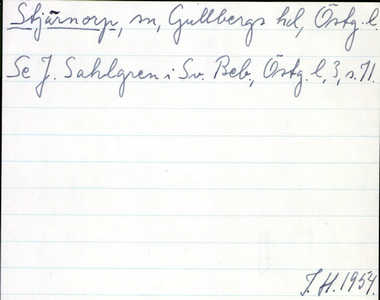 Stjärnorp, sn, Gullbergs hd, Östg. l.
Se J. Sahlgren i Sv. Beb., Östg. l, 3, s. 71.
J. H. 1954.